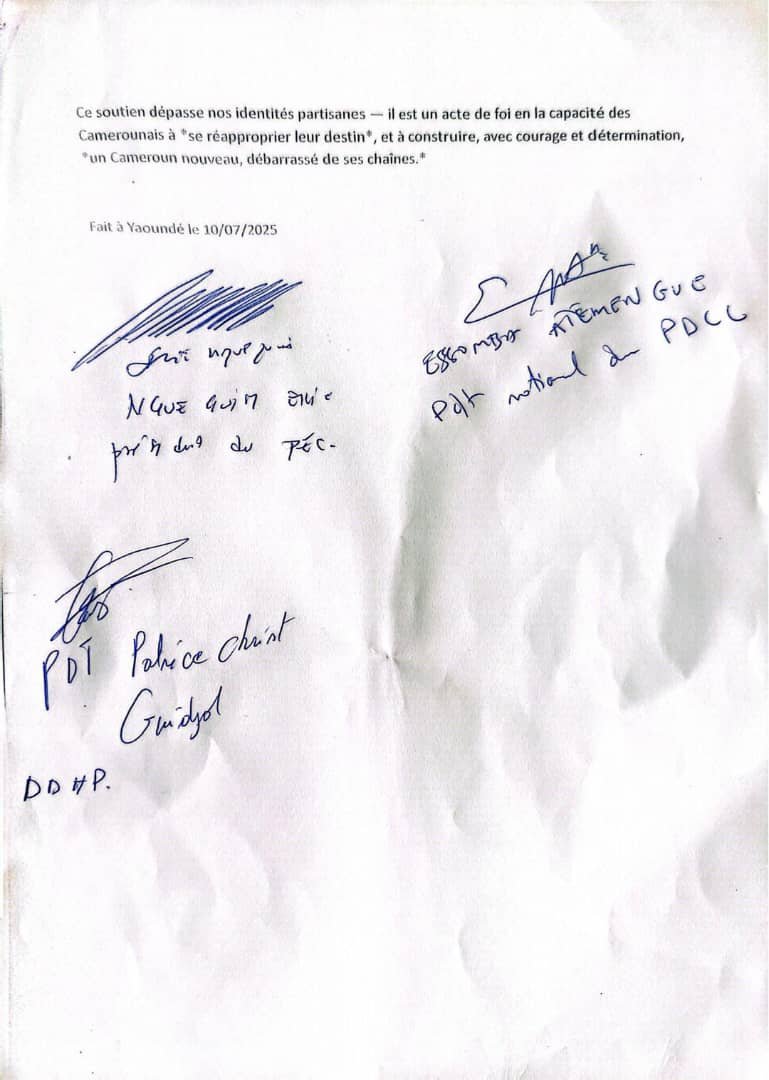 Ce soutien dépasse nos identités partisanes — il est un acte de foi en la capacité des
Camerounais à *se réapproprier leur destin*, et à construire, avec courage et détermination,
*un Cameroun nouveau, débarrassé de ses chaînes.*
Fait à Yaoundé le 10/07/2025
ESSOMBA ATEMENGUE
Pdt national du PDCC
NGUE
du PÉC.
PDT Patrice Christ
Guidjol
DDHP.